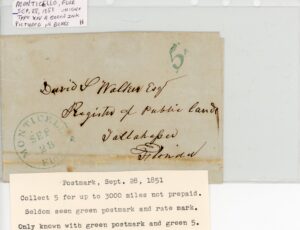 MONTICELLO, FLOR
SEP. 28, 1851
TYPE XIV GREEN INK
PICTURED IN BOOK
5
David S Walker Esqr
Register of Public lands
Tallahassee
Florida
MONTICELLO
SEP
28
Postmark, Sept. 28, 1851
Collect 5 for up to 3000 miles not prepaid.
Seldom seen green postmark and rate mark.
Only known with green postmark and green 5.